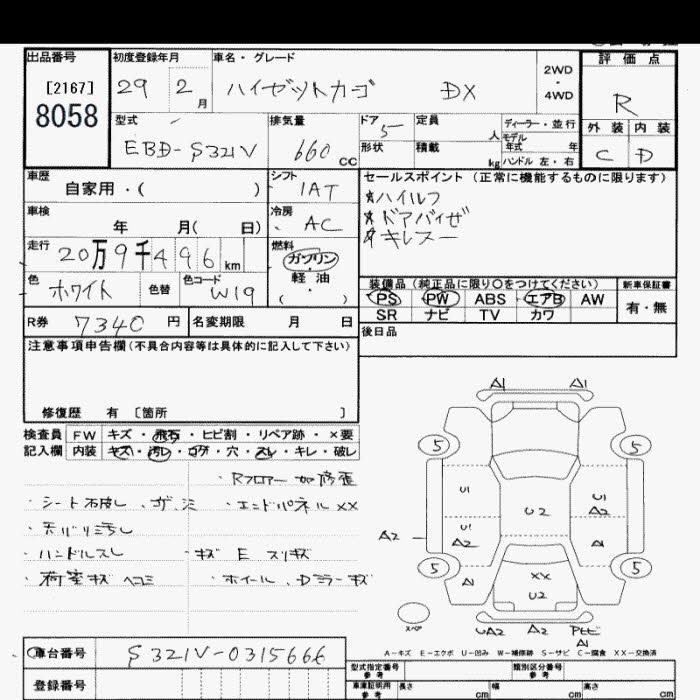 出品番号
[2167]
8058
初度登録年月
29 2月
車名・グレード
ハイゼットカーゴ DX
2WD
・
4WD
評価点
R
外装 内装
C D
型式
EBD-S321V
排気量
660 CC
ドア 5
形状
定員 人
積載 kg
ディーラー・並行
モデル
年式 年
ハンドル 左・右
車歴
自家用・( )
シフト
IAT
車検
年 月( 日)
冷房
AC
走行
20万9千496 km
燃料
ガソリン
・
軽油
・
( )
色
ホワイト
色替
色コード
W19
R券 7340 円
名変期限 月 日
セールスポイント (正常に機能するものに限ります)
★ハイルフ
★ドアバイザ
★キレスー
装備品 (純正品に限り〇をつけてください)
PS PW ABS エアB AW
SR ナビ TV カワ
新車保証書
有・無
後日品
注意事項申告欄 (不具合内容等は具体的に記入して下さい)
修復歴 有 〔箇所 〕
検査員
記入欄
FW キズ・飛石・ヒビ割・リペア跡・×要
内装 キズ・汚レ・コゲ・穴・スレ・キレ・破レ
・Rフロアー 加修歪
・シート 汚レ ・ザ.ミ ・エンドパネル XX
・天バリ汚レ
・ハンドルスレ ・キズ E スリキズ
・荷室キズ ヘコミ ・ホイール、Dミラーキズ
A1 A1
5 5
U1
U2
U1
A2
U1
A2
A2
A1
5 5
A1
XX
U2
スペア
UA2 A2
A1
A-キズ E-エクボ U-凹み W-補修跡 S-サビ C-腐食 XX-交換済
車台番号
S321V-0315666
登録番号
型式指定番号
参考
類別区分番号
参考
車庫証明用
参考
長さ cm
幅 cm
高さ cm